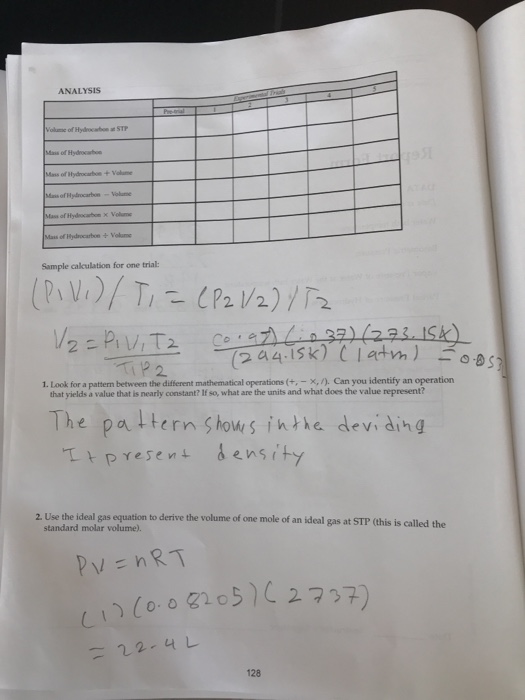 ANALYSIS
Experimental Trials
Pre-trial 1 2 3 4 5
Volume of Hydrocarbon at STP
Mass of Hydrocarbon
Mass of Hydrocarbon + Volume
Mass of Hydrocarbon − Volume
Mass of Hydrocarbon × Volume
Mass of Hydrocarbon ÷ Volume
Sample calculation for one trial:
(P1V1)/T1 = (P2V2)/T2
V2 = P1V1T2 / T1P2 (0.97)(.037)(273.15K) / (294.15K)(1atm) =
1. Look for a pattern between the different mathematical operations (+, − ×, /). Can you identify an operation
that yields a value that is nearly constant? If so, what are the units and what does the value represent?
The pattern shows in the deviding
It present density
2. Use the ideal gas equation to derive the volume of one mole of an ideal gas at STP (this is called the
standard molar volume).
PV = nRT
(1)(0.08205)(2737)
= 22.4L
128